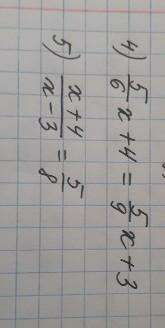 4) 5/6 x + 4 = 5/9 x + 3
5) x+4/x-3 = 5/8